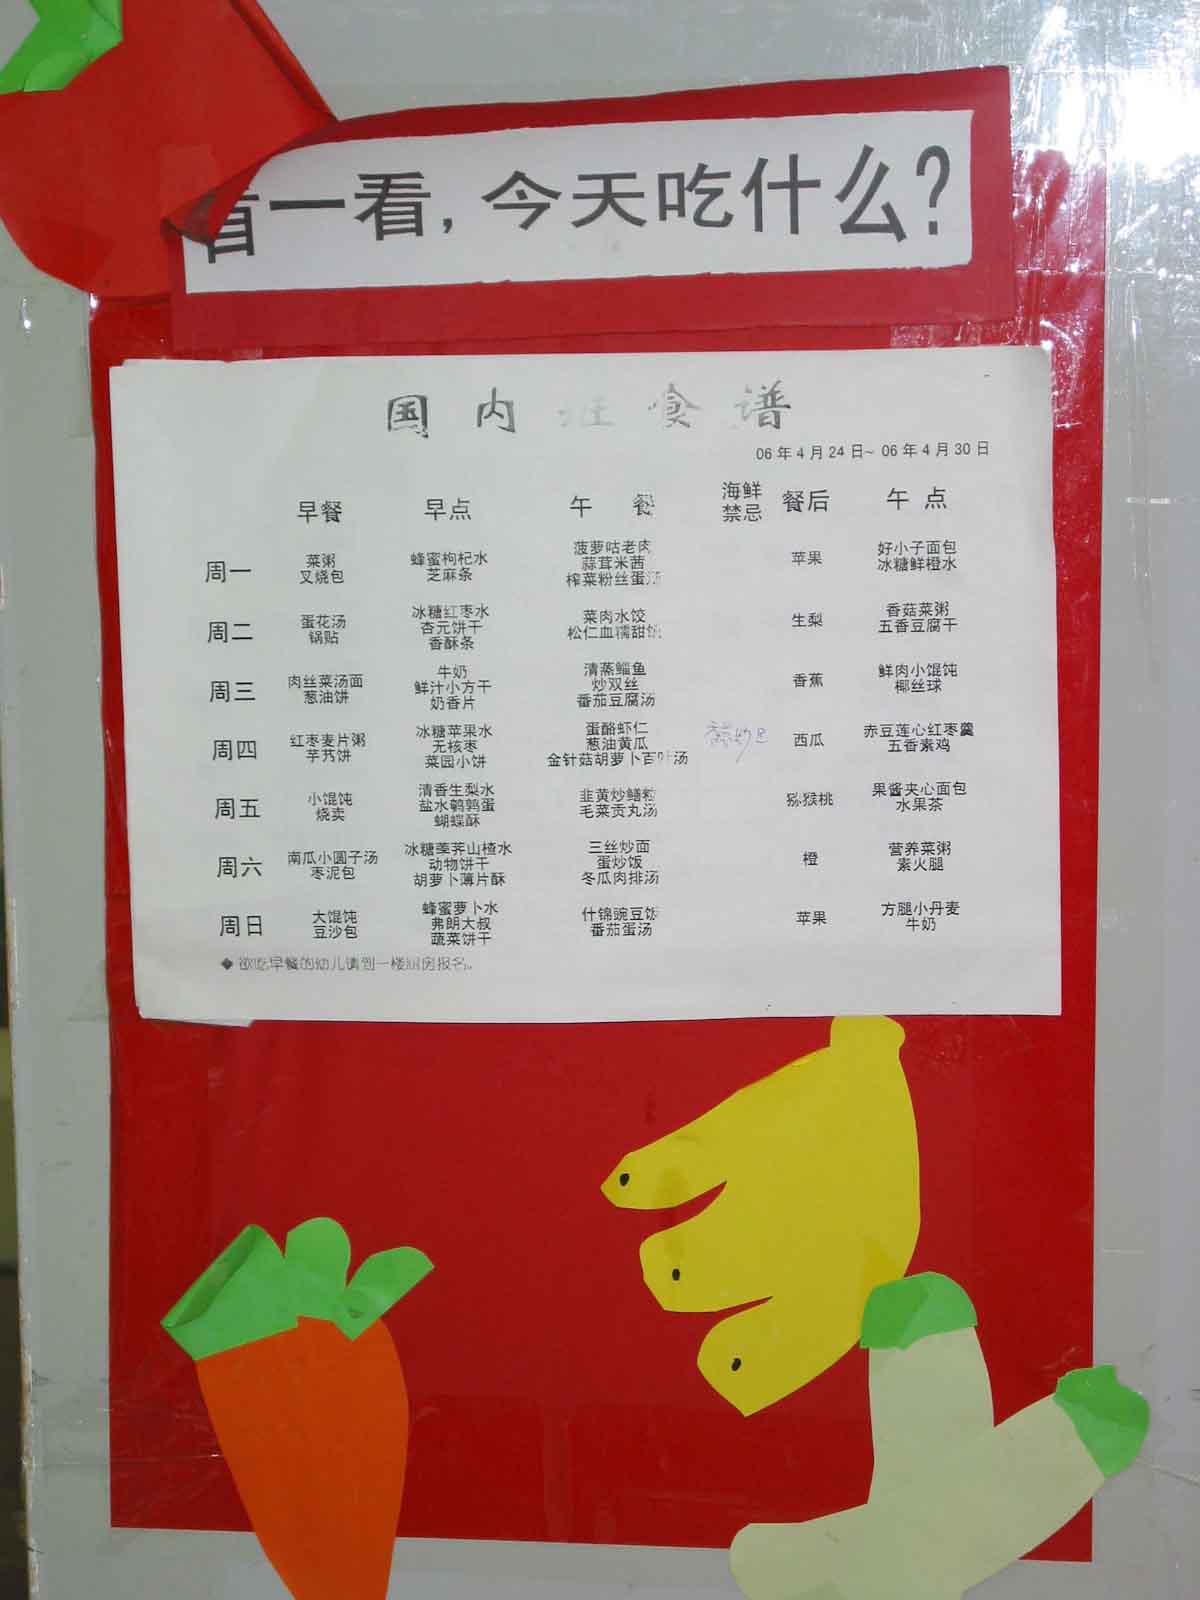 看一看,今天吃什么?
国内班食谱
06年4月24日~06年4月30日
早餐 早点 午餐 海鲜禁忌 餐后 午点
周一
菜粥
叉烧包
蜂蜜枸杞水
芝麻条
菠萝咕老肉
蒜茸米茜
榨菜粉丝蛋汤
苹果
好小子面包
冰糖鲜橙水
周二
蛋花汤
锅贴
冰糖红枣水
杏元饼干
香酥条
菜肉水饺
松仁血糯甜饭
生梨
香菇菜粥
五香豆腐干
周三
肉丝菜汤面
葱油饼
牛奶
鲜汁小方干
奶香片
清蒸鲻鱼
炒双丝
番茄豆腐汤
香蕉
鲜肉小馄饨
椰丝球
周四
红枣麦片粥
芋艿饼
冰糖苹果水
无核枣
菜园小饼
蛋酪虾仁
葱油黄瓜
金针菇胡萝卜百叶汤
西瓜
赤豆莲心红枣羹
五香素鸡
周五
小馄饨
烧卖
清香生梨水
盐水鹌鹑蛋
蝴蝶酥
韭黄炒鳝粒
毛菜贡丸汤
猕猴桃
果酱夹心面包
水果茶
周六
南瓜小圆子汤
枣泥包
冰糖荸荠山楂水
动物饼干
胡萝卜薄片酥
三丝炒面
蛋炒饭
冬瓜肉排汤
橙
营养菜粥
素火腿
周日
大馄饨
豆沙包
蜂蜜萝卜水
弗朗大叔
蔬菜饼干
什锦豌豆饭
番茄蛋汤
苹果
方腿小丹麦
牛奶
◆欲吃早餐的幼儿请到一楼厨房报名。